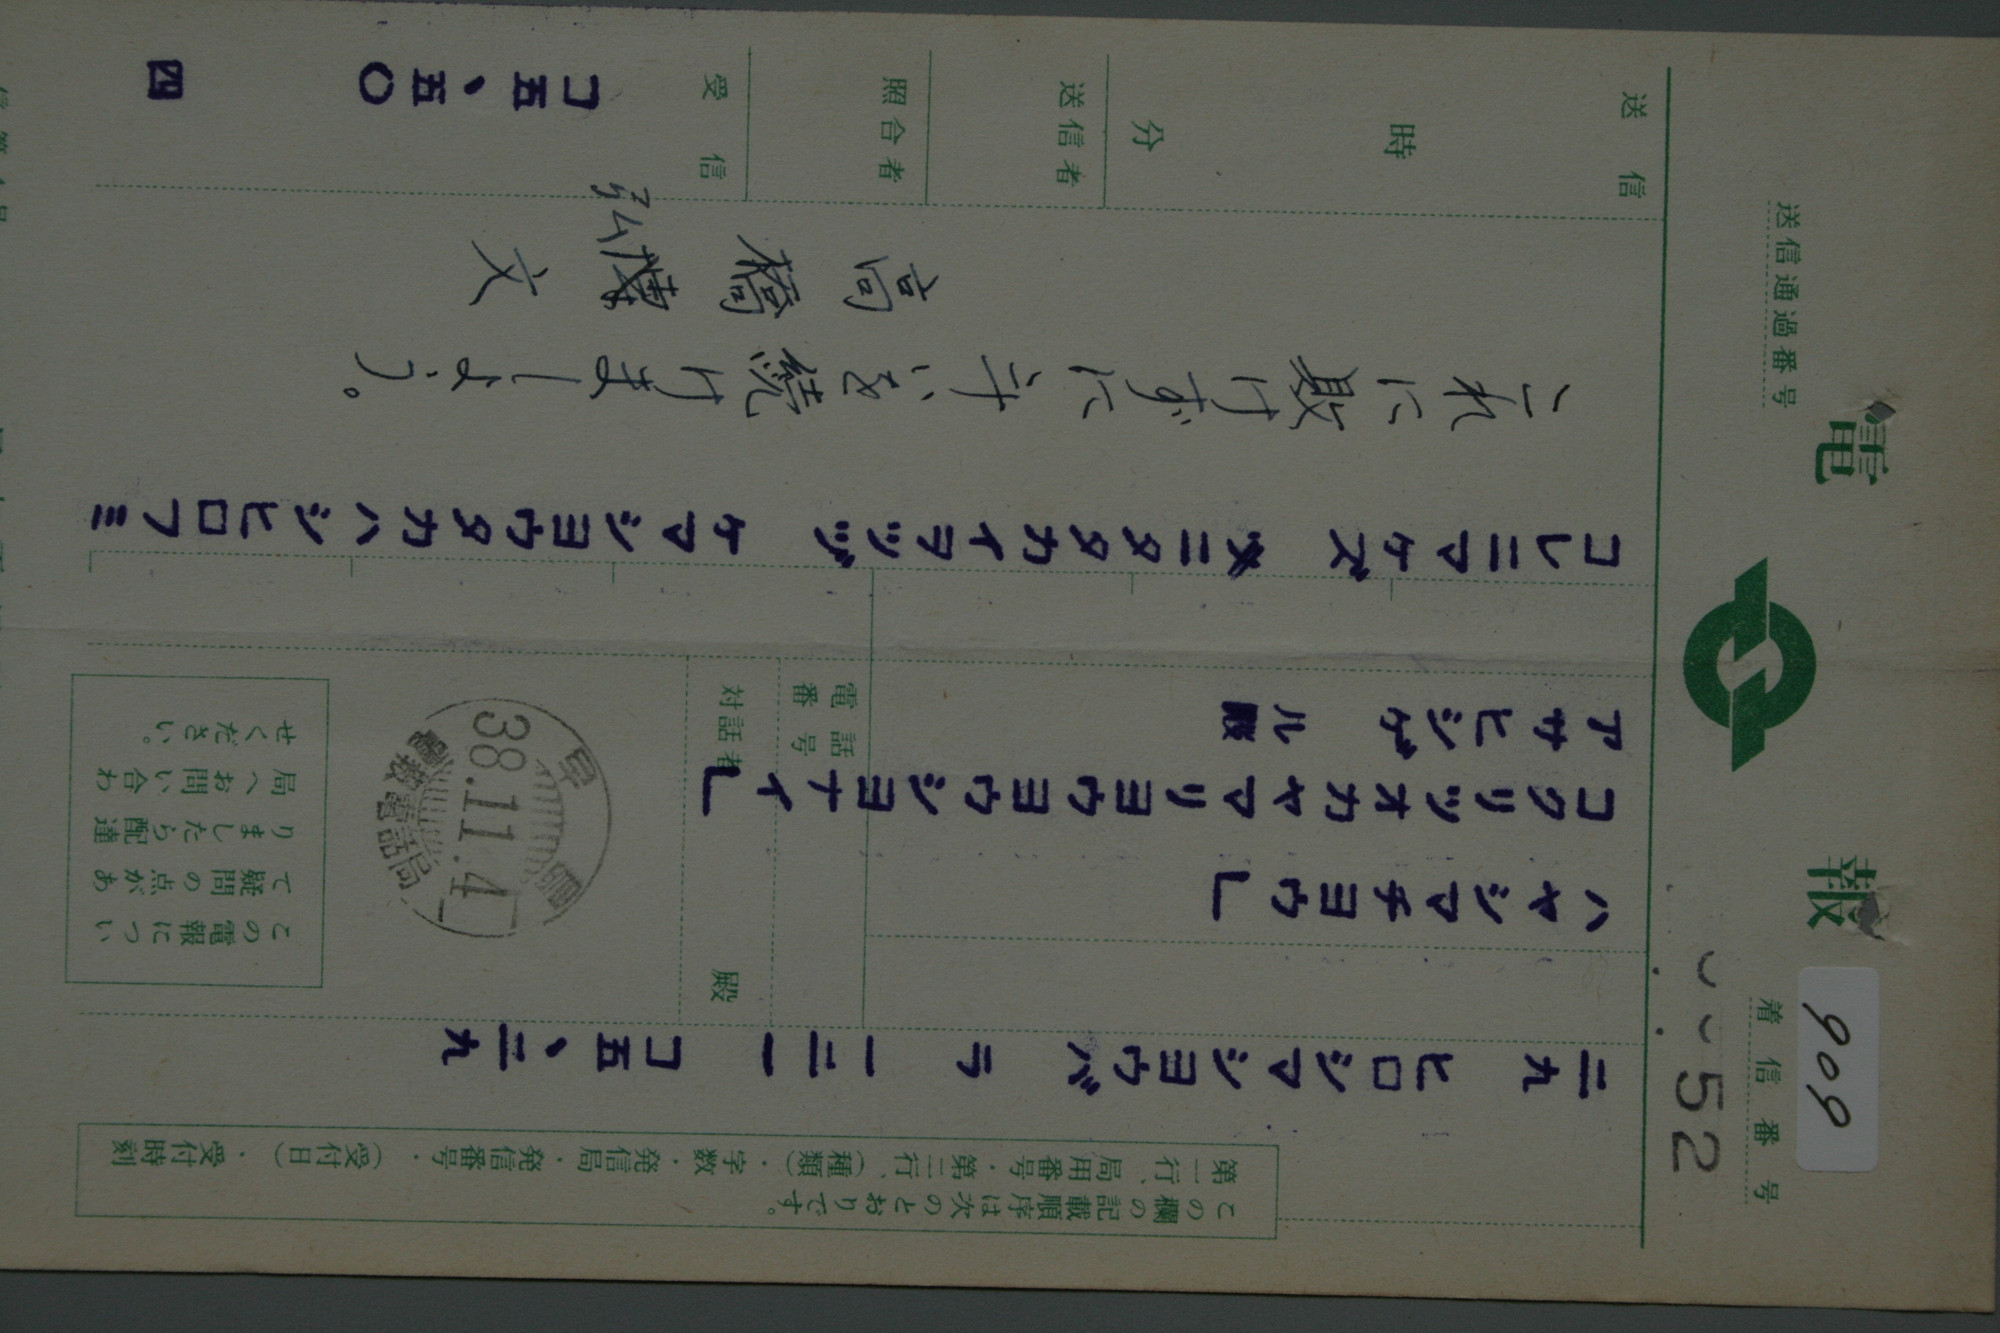 電報
909
着信番号
52
送信通過番号
この欄の記載順序は次のとおりです。
第一行、局用番号・第二行、(種類)・字数・発信局・発信番号・(受付日)・受付時刻
二九 ヒロシマシヨウバ ラ 一二一 コ五、二九
ハヤシマチヨウ」
コクリツオカヤマリヨウヨウシヨナイ」
アサヒシゲル殿
電話番号
対話者 殿
早島
38.11.4
電報電話局
この電報につい
て疑問の点があ
りましたら配達
局へお問い合わ
せください。
コレニマケズ ニタタカイヲツヅ ケマシヨウタカハシヒロフミ
これに敗けずに斗いを続けましよう。
高橋弘文
送信
時
分
送信者
照合者
受信
コ五、五〇
四